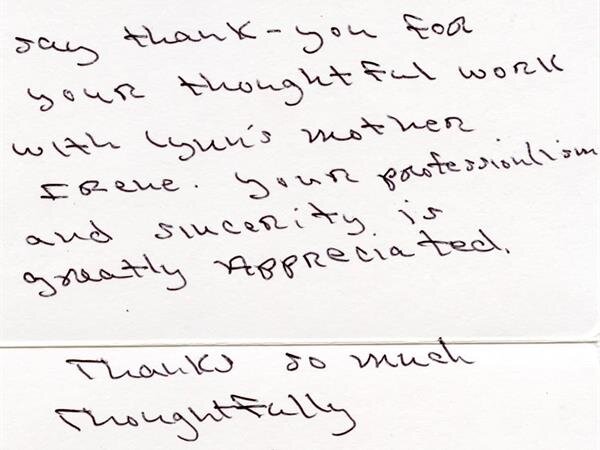 say thank-you for
your thoughtful work
with Lynn's mother
Irene. Your professionlism
and sincerity is
greatly Appreciated.
Thanks so much
Thoughtfully